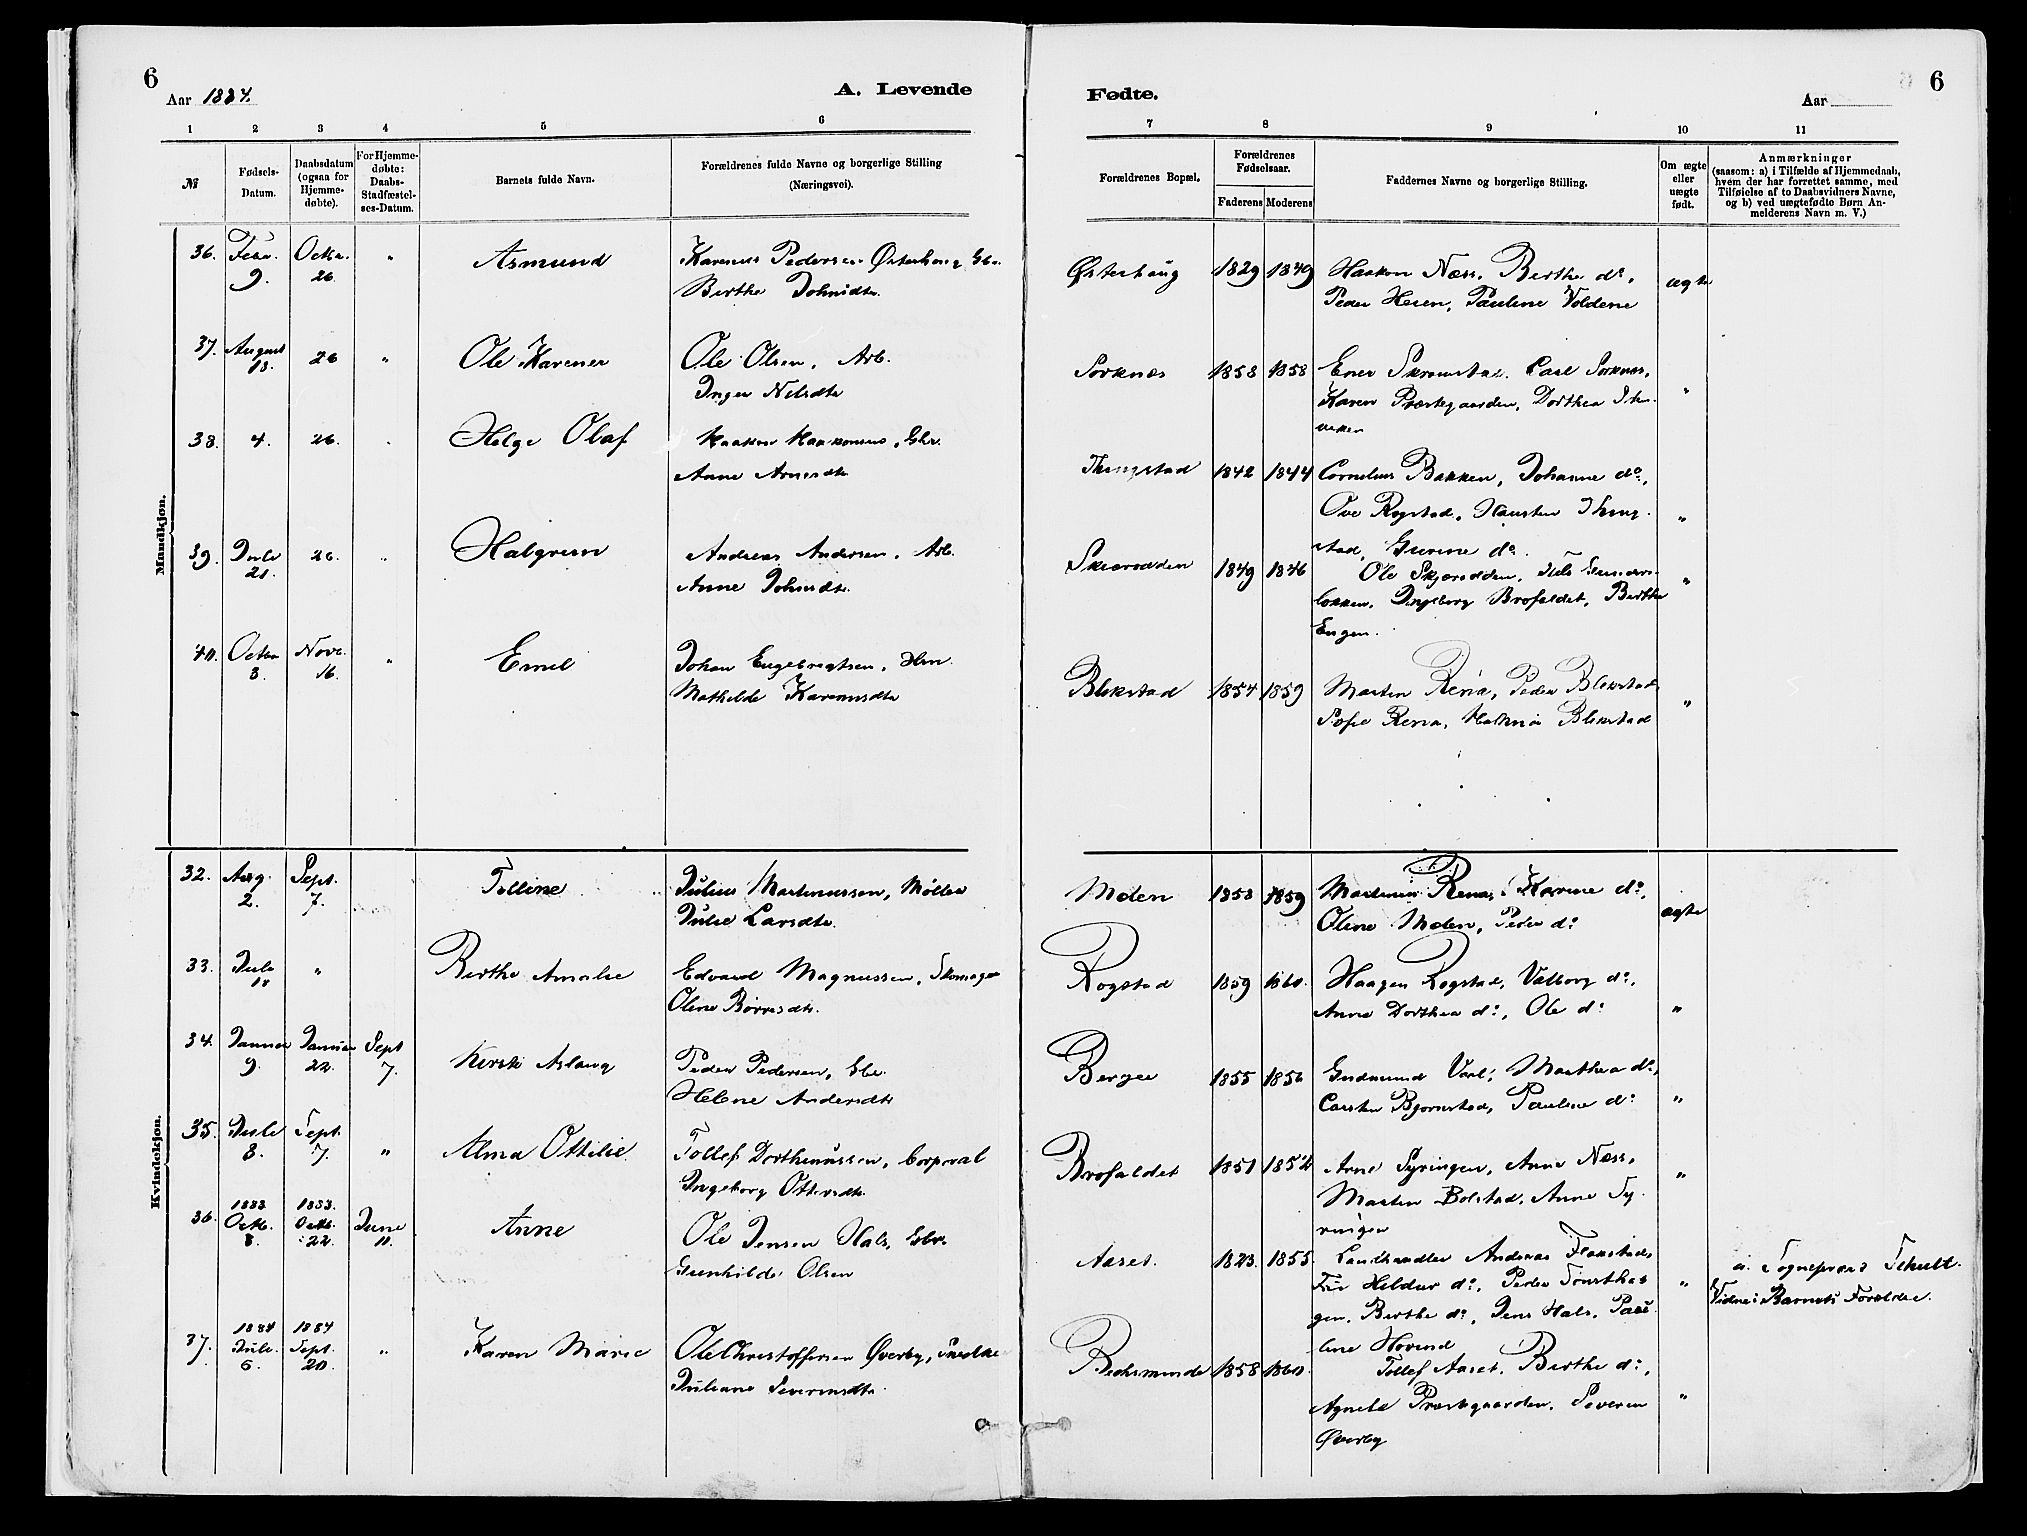 6
Aar 1884.
A. Levende
Fødte.
Aar
6
1 2 3 4 5 6
7 8 9 10 11
№
Fødsels-
Datum.
Daabsdatum
(ogsaa for
Hjemme-
døbte).
For Hjemme-
døbte:
Daabs-
Stadfæstel-
ses-Datum.
Barnets fulde Navn.
Forældrenes fulde Navne og borgerlige Stilling
(Næringsvei).
Forældrenes Bopæl.
Forældrenes
Fødselsaar.
Faderens Moderens
Faddernes Navne og borgerlige Stilling.
Om ægte
eller
uægte
født.
Anmærkninger
(saasom: a) i Tilfælde af Hjemmedaab,
hvem der har forrettet samme, med
Tilføielse af to Daabsvidners Navne,
og b) ved uægtefødte Børn An-
melderens Navn m. V.)
Mandkjøn.
36. 9. 26. " Asmund
Karenus Pedersen Østerhaug
Berthe Johnsdtr.
Østerhaug 1829 1849
Haakon Næss, Berthe do,
Peder Heien, Pauline Voldene
ægte
37. August 18. 26 " Ole Karener
Ole Olsen, Arb.
Inger Nilsdtr
Sorknæs 1858 1858
Carl Sorknæs,
Karen Præstegaarden, Dorthea
"
38. 4. 26. Helge Olaf
Haakon Haakonsen, Gbr.
Anne Arnesdtr
Thingstad 1842 1844
Cornelius Bakken, Johanne do,
Ove Rogstad, Thing-
stad, do.
"
39. Juli 21. 26. " Halgrim
Andreas Andersen, Arb.
Anne Johnsdtr.
Skjærodden 1849 1846
Ole Skjærodden,
Ingeborg Brofaldet, Berthe
Engen.
"
40. Octbr 8. Novbr. 16. " Emil
Johan Engebregtsen,
Mathilde Karenusdtr
Blekstad 1854 1859
Martin Rena, Peder Blekstad
Sofie Rena, Blekstad
"
Kvindekjøn.
32. Aug. 2. Sept. 7. Tolline
Julius Martinussen, Møller
Julie Larsdtr.
Moen 1858 1859
Martinus Rena, Karine do,
Oline Moen, Peder do
ægte
33. Juli 18 " Berthe Amalie
Edvard Magnussen, Skomager
Oline Børresdtr.
Rogstad 1859 1860.
Haagen Rogstad, Valborg do,
Anne Dorthea do, Ole do
"
34. Januar 9. Januar 22. Sept 7. Kirsti Aslaug
Peder Pedersen, Gbr.
Helene Andersdtr
Berger 1855 1856
Gudmund Marthea do,
Carsten Bjørnstad, Pauline do
"
35. Juli 8. Sept. 7. " Alma Ottilie
Tollef Dorthenussen, Corporal
Ingeborg Ottersdtr.
Brofaldet 1851 1852
Arne Syringen, Anne Næss,
Martin Bolstad, Anne Sy-
ringen
"
36. 1883 Octb. 8. 1883. Octb. 22. June 11. Anne
Ole Jensen Hals, Gbr.
Gunhilde Olsen
Aaset. 1823. 1855.
Landhandler Andreas Flakstad,
Fru Hildur do, Peder
gen, Berthe do, Jens Hals, Pau-
line Hovind
"
a. Sogneprest Schult.
Vidne: Barnets Forældre.
37. 1884 Juli 6. 1884 Sept. 20. " Karen Marie
Ole Christoffersen Øverby,
Juliane Severinsdtr.
1858 1860.
Tollef Aaset, Berthe do,
Agnete Præstegaarden, Severin
Øverby
"